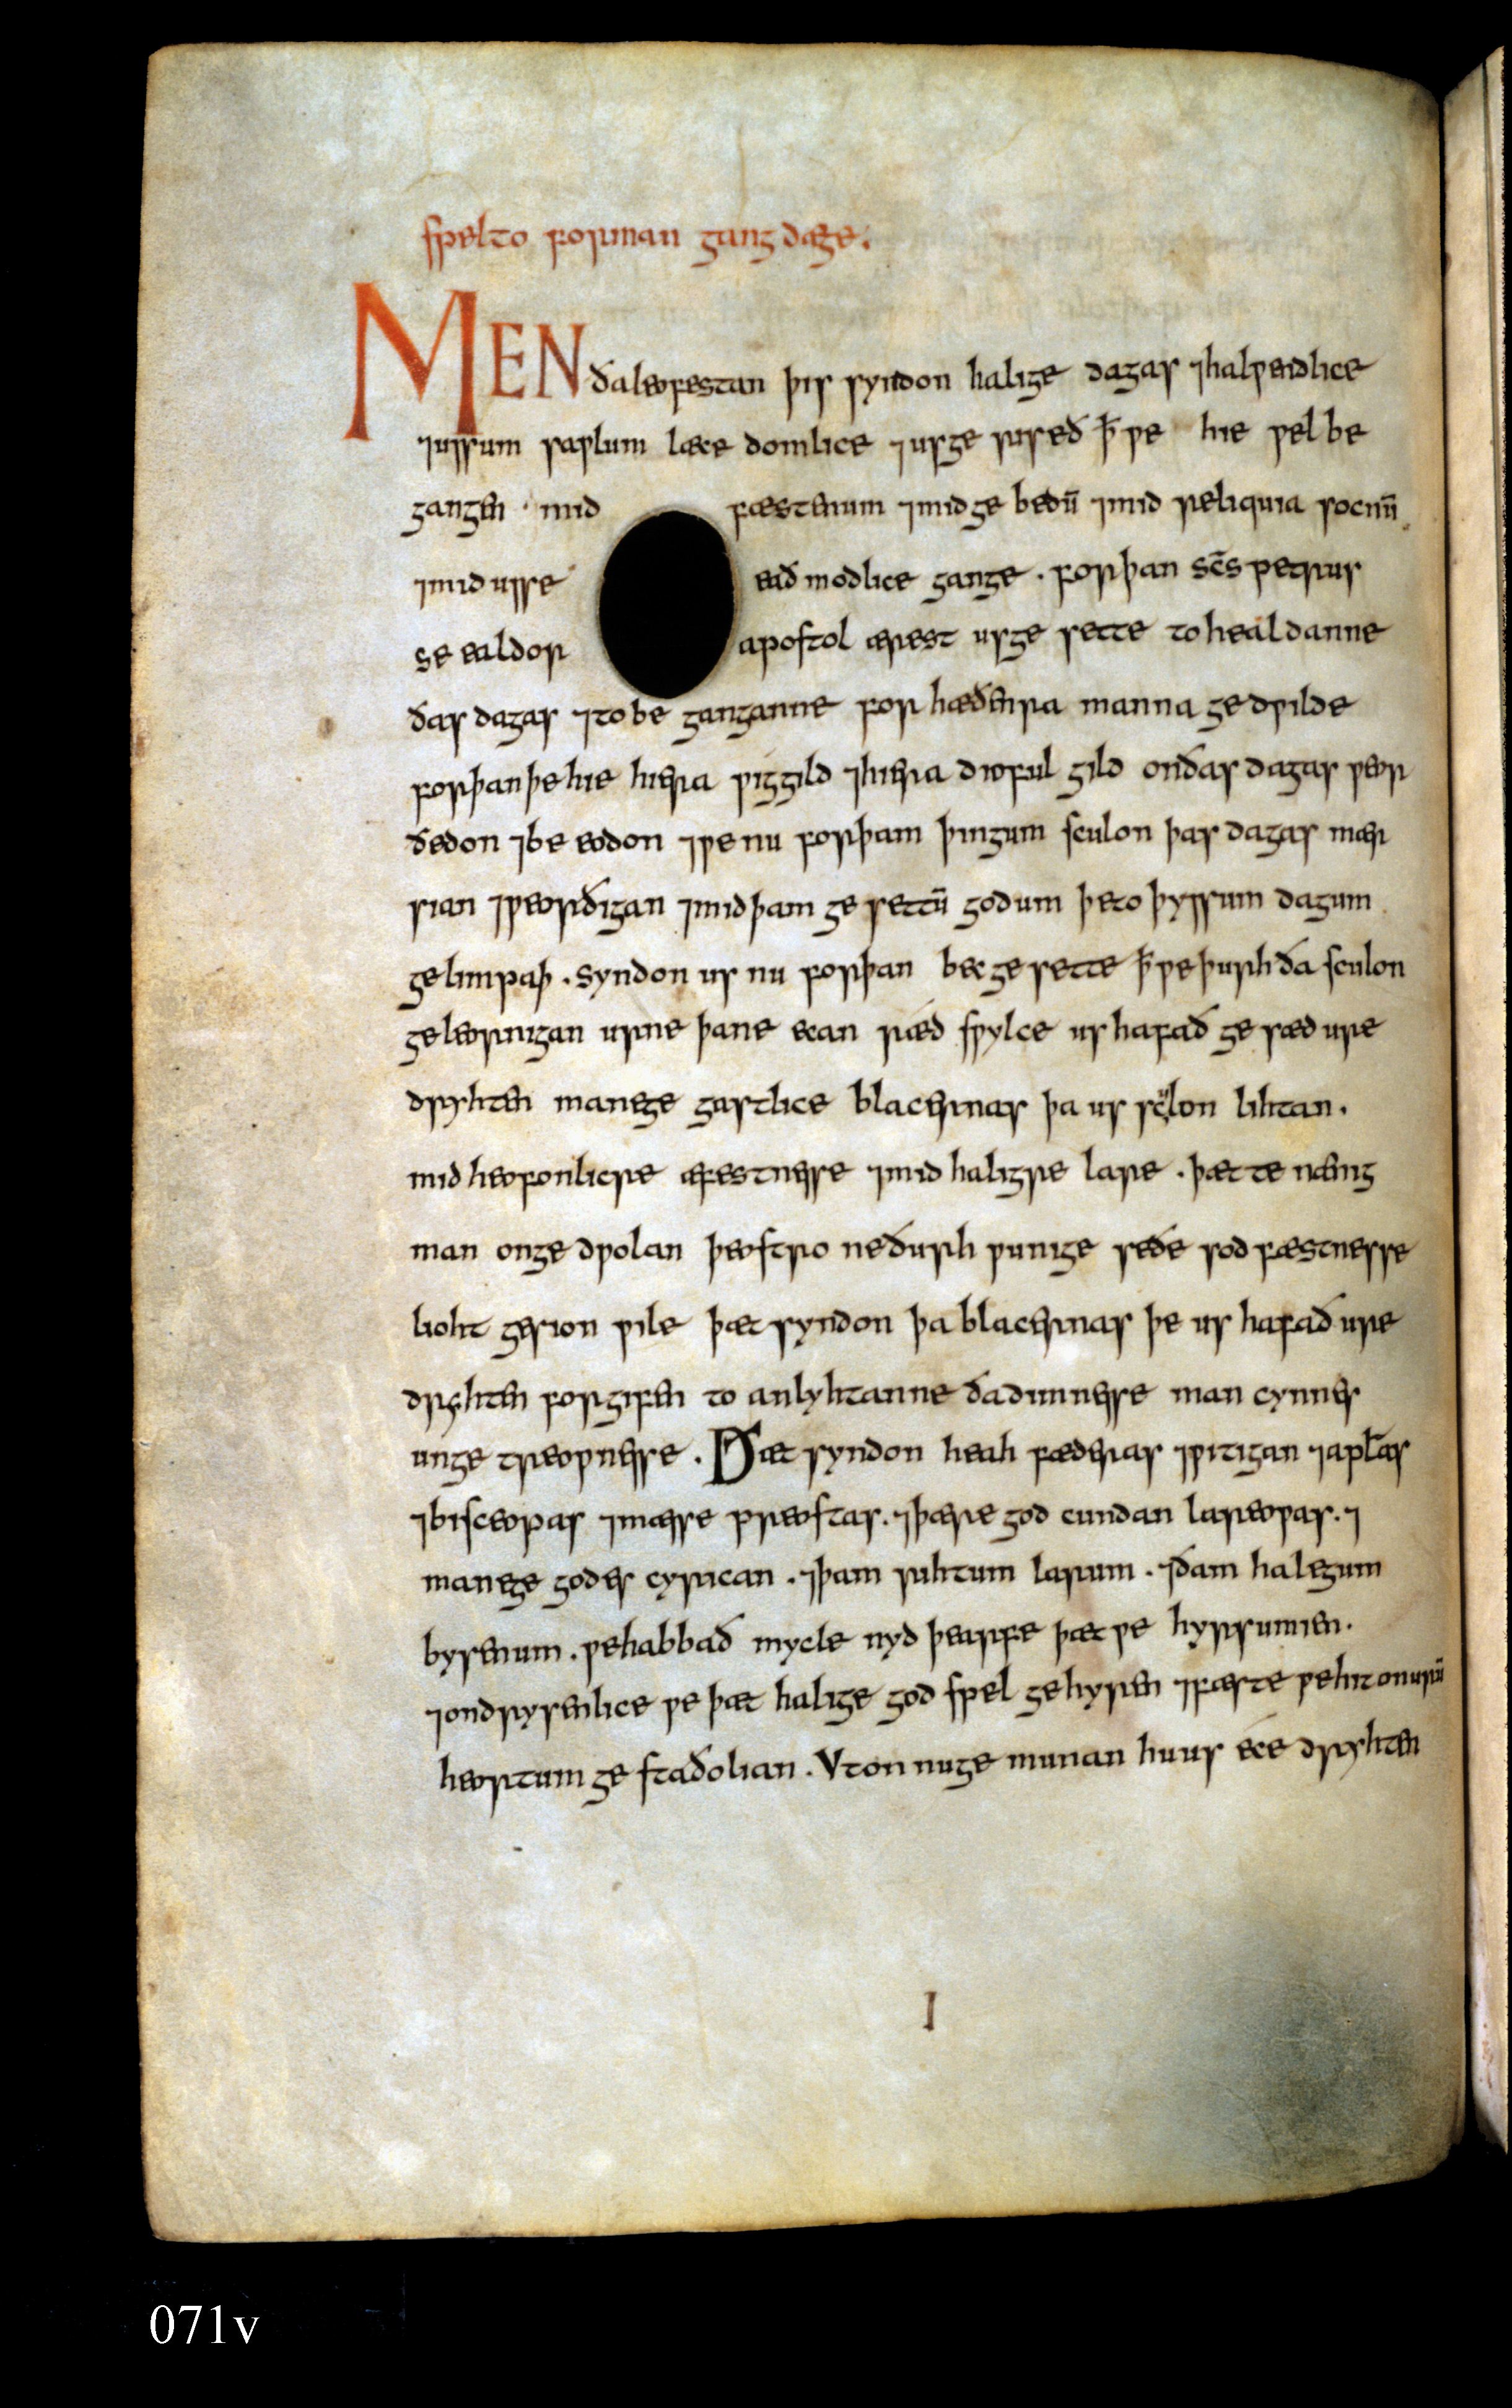 spel to forman gang dæge.
MEN ða leofestan þis syndon halige dagas ⁊halƿendlice
⁊ussum saƿlum læce domlice ⁊usge rised ꝥ ƿe hie ƿel be
gangen mid fæstenum ⁊mid ge bedū ⁊mid reliquia socnū
⁊mid usse ead modlice gange. forþan scs̄ petrus
se ealdor apostol ærest us ge sette to healdanne
ðas dagas ⁊to be ganganne for hæðenra manna ge dƿilde
forþan þe hie hiera ƿiggild ⁊hiera dioful gild on ðas dagas ƿeor
ðedon ⁊be eodon ⁊ƿe nu forþam þingum sculon þas dagas mær
sian ⁊ƿeorðigan ⁊mid þam ge settū godum þe to þyssum dagum
ge limpaþ. syndon us nu forþan bec ge sette ꝥ ƿe þurh ða sculon
ge leornigan urne þane ecan ræd sƿylce us hafað ge sæd ure
dryhten manege gastlice blacernas þa us sculon lihtan.
mid heofonlicre æfestnesse ⁊mid haligre lare. þætte nænig
man on ge dƿolan þeostro ne ðurh ƿunige seðe soð fæstnesse
lioht gesion ƿile þæt syndon þa blacernas þe us hafað ure
dryhten forgifen to anlyhtanne ða dimnesse man cynnes
unge treoƿnesse. Ðæt syndon heah fæderas ⁊ƿitigan ⁊apl̄as
⁊bisceopas ⁊mæsse preostas. ⁊þære god cundan lareoƿas. ⁊
manege godes cyrican. ⁊þam rihtum larum. ⁊ðam halegum
bysenum. ƿe habbað mycle nyd þearfe þæt ƿe hyrsumien.
⁊ondrysenlice ƿe þæt halige god spel gehyren ⁊fæste ƿe hit on urū
heortum ge staðolian. Vton nu ge munan hu us ece dryhten
I
071v